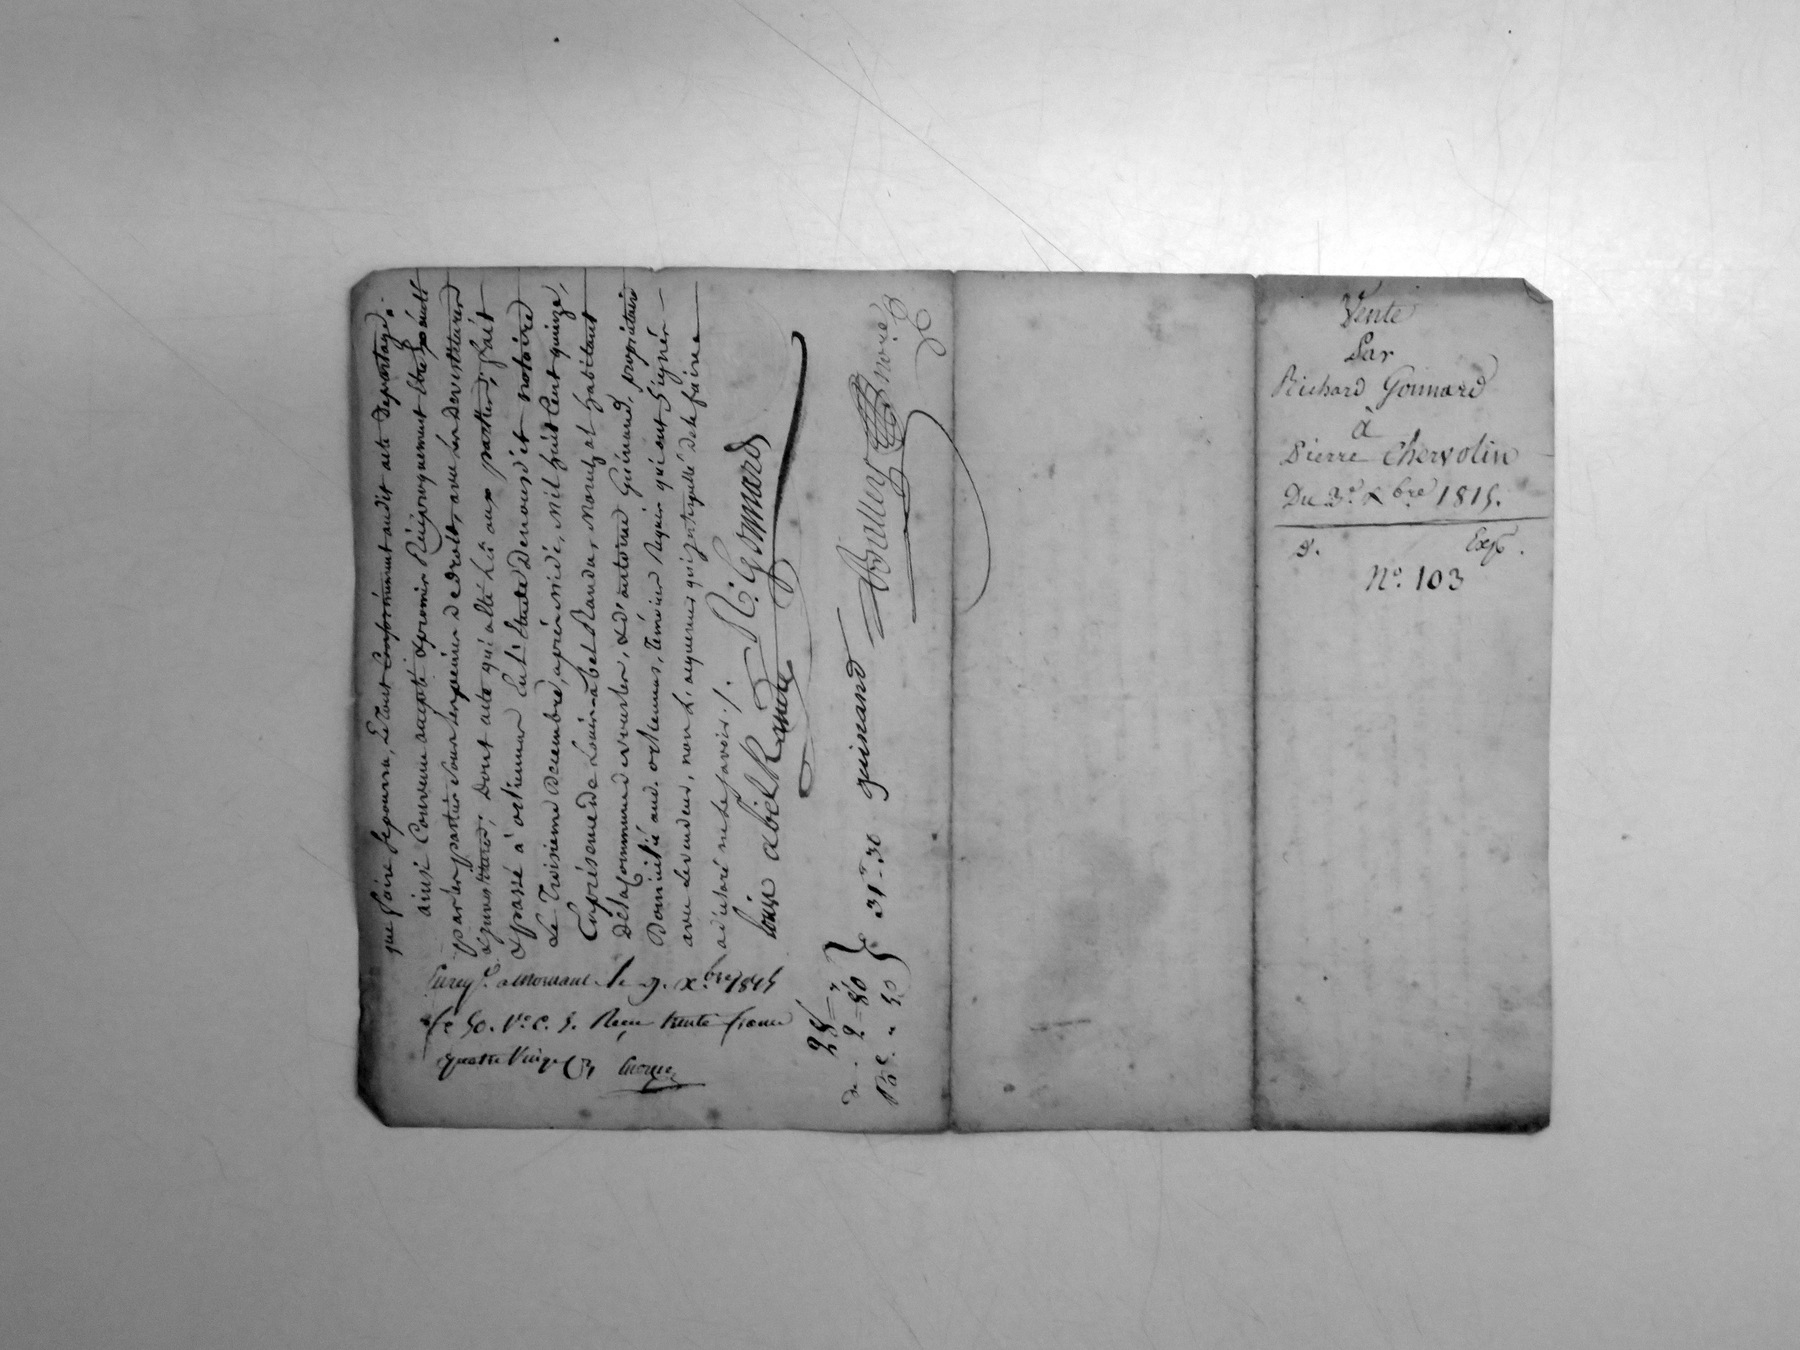 que faire se pourra, Le Tout Conformément audit acte de partage.
ainsi Convenu accepté & promis Réciproquement être
par les parties sous les peines de droit, avec les Devestitures
& jnvestitures; Dont acte qui a été Lû aux parties, fait
& passé à orlienas En L'Etude de nousdit notaire
Le Troisieme décembre, après midi, Mil huit Cent quinze,
En présence de Louis-abel Randu, et habitant
De la Commune & d'antoine Guinand, propriétaire
Domicilié aud. orlienas, Témoins Requis qui ont Signés
avec Le vendeur, non L'acquereur qui jnterpellé de le faire
a déclaré ne le savoir ./.
louis abel Randu R: Gonnard
guinand Boullez noire
Enregt. a Mornant le 9. Xbre 1815
fo 50. Vo C. 5. Reçu trente francs
quatre Vingt
de . 28 = "
2 = 80
" 50
31 = 30
Vente
Par
Richard Gonnard
à
Pierre Chervolin
Du 3e Xbre 1815.
Exp.
No. 103